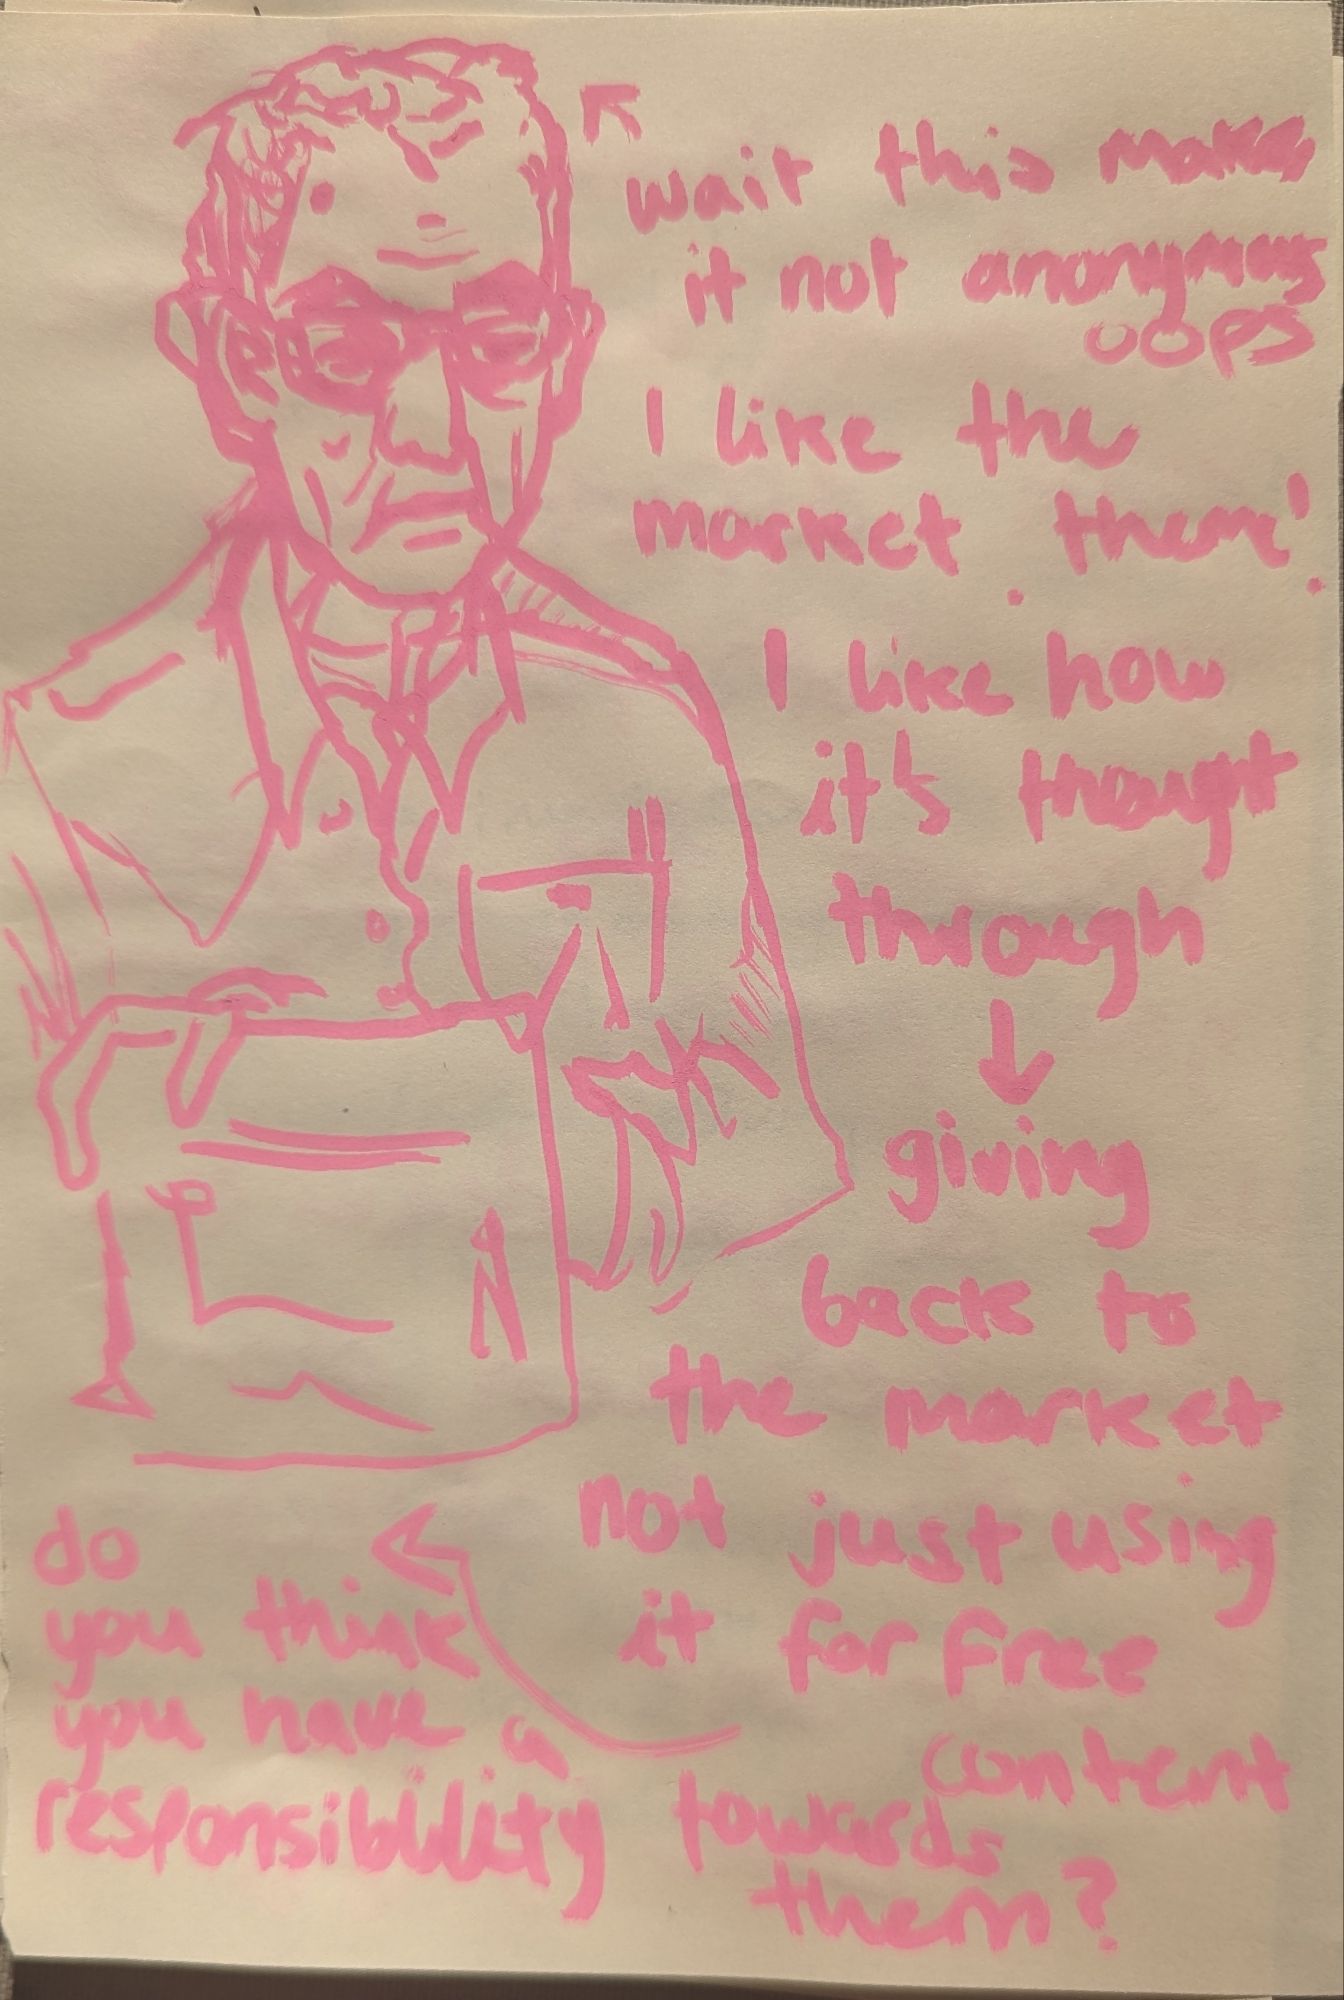 wait this makes
it not anonymous
oops
I like the
market theme!
I like how
it's thought
through
giving
back to
the market
not just using
it for free
content
do
you think
you have a
responsibility towards
them?